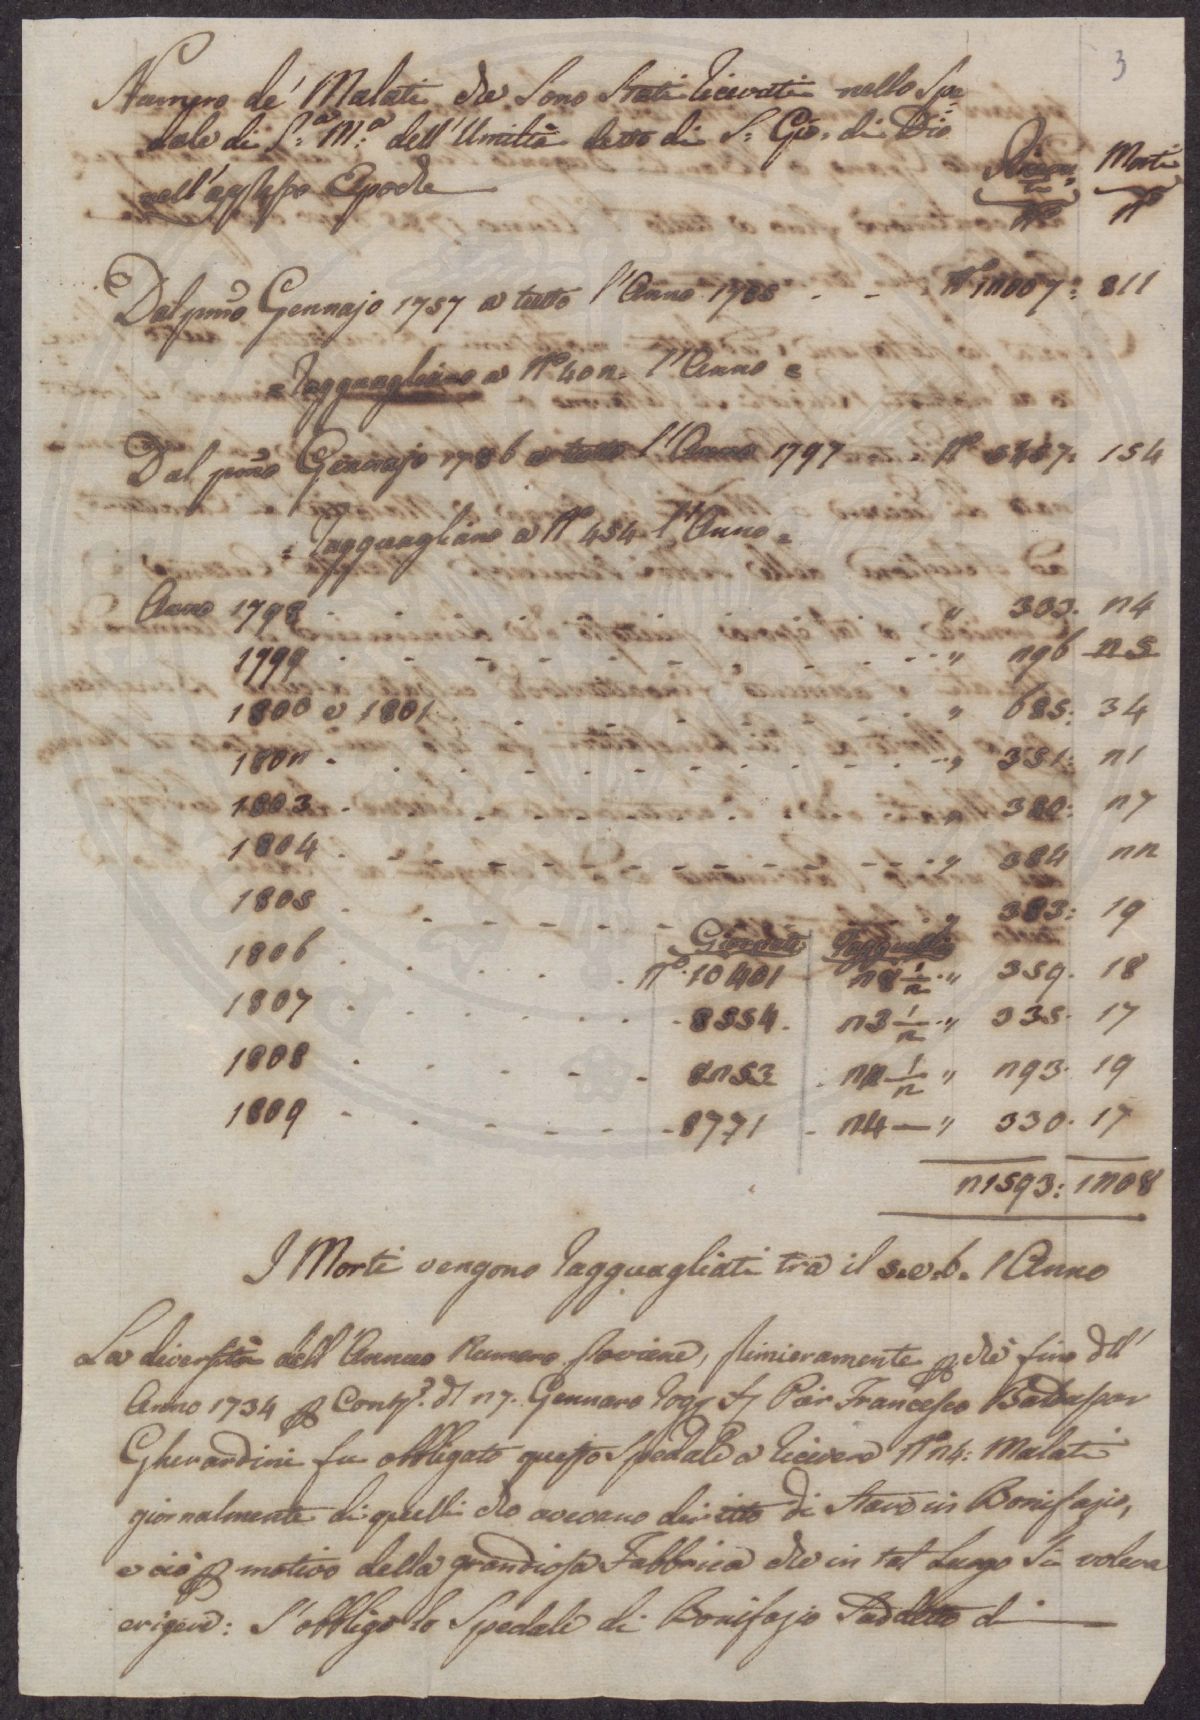 3
Numero de' Malati che sono stati ricevuti nello Spe
dale di S.ª M.ª dell'Umiltà detto di S. Gio. di Dio
nell'appresso Epoche
Ricevu= ti Morti
Nº Nº
Dal pmo Gennajo 1757 a tutto l'Anno 1785 - - Nº 12007: 811
= Ragguagliano a Nº 402. l'Anno =
Dal pmo Gennajo 1786 a tutto l'Anno 1797 Nº 5457: 154
= Ragguagliano a Nº 454 l'Anno =
Anno 1798 " 333. 24
1799 " 296 25
1800 e 1801 " 685: 34
1802 " 351: 21
1803 " 380: 27
1804 " 384 22
1805 " 383: 19
Giornate Ragguaglio
1806 Nº 10401 28 1/2 " 359. 18
1807 8554. 23 1/2 " 335. 17
1808 8253 22 1/2 " 293. 19
1809 8771 24 — " 330. 17
21593: 1208
I Morti vengono Ragguagliati tra il 5. e. 6. l'Anno
La diversità dell'Annuo Numero proviene, primieramente che fino dell'
Anno 1734 p Conto. di 27. Gennaro Rog. Pier Francesco Baldassar
Gherardini fu obbligato questo Spedale a ricevere Nº 24: Malati
giornalmente di quelli che avevano diritto di stare in Bonifazio,
e ciò p motivo della grandiosa Fabbrica che in tal Luogo si voleva
erigere: S'obbligò lo Spedale di Bonifazio Suddetto di